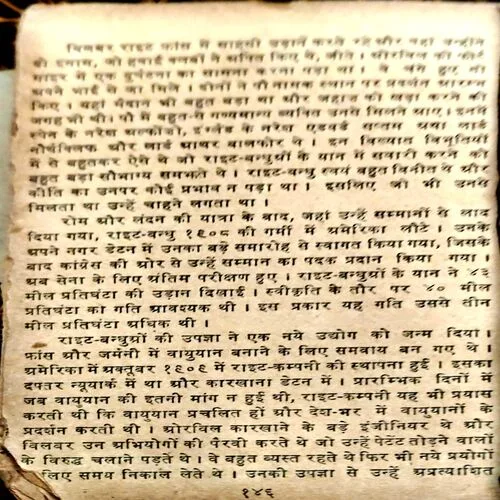 विलबर राइट फ्रांस में साहसी उड़ानें करते रहे और वहां उन्होंने
वी इनाम, जो हवाई क्लबों ने अर्पित किए थे, जीते । ओरविल को फोर्ट
माइर में एक दुर्घटना का सामना करना पड़ा था । वे चंगे हुए तो
अपने भाई से जा मिले । दोनों ने पौ नामक स्थान पर प्रदर्शन आरम्भ
किए । यहां मैदान भी बहुत बड़ा था और जहाज को खड़ा करने की
जगह भी थी । पौ में बहुत-से गण्यमान्य व्यक्ति उनसे मिलने आए । इनमें
स्पेन के नरेश अल्फोंजो, इंग्लैंड के नरेश एडवर्ड सप्तम तथा लार्ड
नौर्थक्लिफ और लार्ड आथर बालफोर थे । इन विख्यात विभूतियों
में से बहुतकर ऐसे थे जो राइट-बन्धुओं के यान में सवारी करने को
बहुत बड़ा सौभाग्य समझते थे । राइट-बन्धु स्वयं बहुत विनीत थे और
कीर्ति का उनपर कोई प्रभाव न पड़ा था । इसलिए जो भी उनसे
मिलता था उन्हें चाहने लगता था ।
रोम और लंदन की यात्रा के बाद, जहां उन्हें सम्मानों से लाद
दिया गया, राइट-बन्धु १९०८ की गर्मी में अमेरिका लौटे । उनके
अपने नगर डेटन में उनका बड़े समारोह से स्वागत किया गया, जिसके
बाद कांग्रेस की ओर से उन्हें सम्मान का पदक प्रदान किया गया ।
अब सेना के लिए अंतिम परीक्षण हुए । राइट-बन्धुओं के यान ने ४३
मील प्रतिघंटा की उड़ान दिखाई । स्वीकृति के तौर पर ४० मील
प्रतिघंटा की गति आवश्यक थी । इस प्रकार यह गति उससे तीन
मील प्रतिघंटा अधिक थी ।
राइट-बन्धुओं की उपज्ञा ने एक नये उद्योग को जन्म दिया ।
फ्रांस और जर्मनी में वायुयान बनाने के लिए समवाय बन गए थे ।
अमेरिका में अक्तूबर १९०९ में राइट-कम्पनी की स्थापना हुई । इसका
दफ्तर न्यूयार्क में था और कारखाना डेटन में । प्रारम्भिक दिनों में
जब वायुयान की इतनी मांग न हुई थी, राइट-कम्पनी यह भी प्रयास
करती थी कि वायुयान प्रचलित हों और देश-भर में वायुयानों के
प्रदर्शन करती थी । ओरविल कारखाने के बड़े इंजीनियर थे और
विलबर उन अभियोगों की पैरवी करते थे जो उन्हें पेटेंट तोड़ने वालों
के विरुद्ध चलाने पड़ते थे । वे बहुत व्यस्त रहते थे फिर भी नये प्रयोगों
के लिए समय निकाल लेते थे । उनकी उपज्ञा से उन्हें अप्रत्याशित
१४६